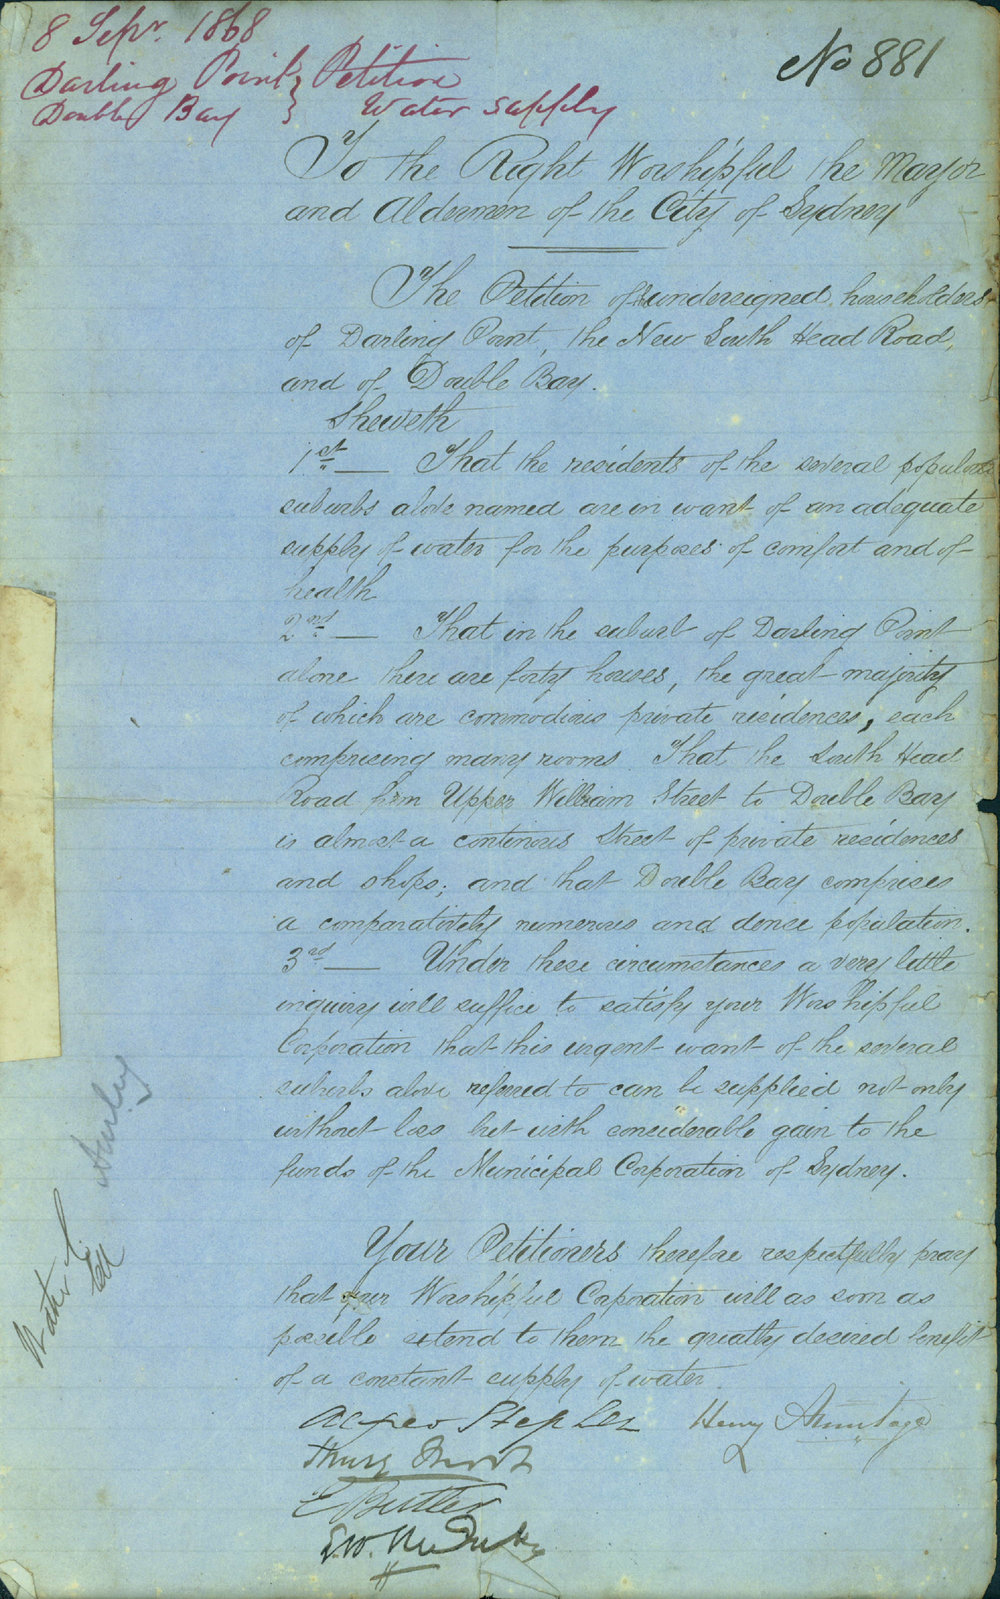 8 Sepr. 1868
No 881
Darling Point } Petition
Double Bay } Water supply
To the Right Worshipful the Mayor
and Aldermen of the City of Sydney
The Petition of undersigned householders
of Darling Point, the New South Head Road,
and of Double Bay.
Sheweth
1st — That the residents of the several populous
suburbs above named are in want of an adequate
supply of water for the purposes of comfort and of
health
2nd — That in the suburb of Darling Point
alone there are forty houses, the great majority
of which are commodious private residences, each
comprising many rooms. That the South Head
Road from Upper William Street to Double Bay
is almost a continous Street of private residences
and shops; and that Double Bay comprises
a comparatively numerous and dense population.
3rd — Under these circumstances a very little
inquiry will suffice to satisfy your Worshipful
Corporation that this urgent want of the several
suburbs above referred to can be supplied not only
without loss but with considerable gain to the
funds of the Municipal Corporation of Sydney.
Your Petitioners therefore respectfully pray
that your Worshipful Corporation will as soon as
possible extend to them the greatly desired benefit
of a constant supply of water.
Alfred Stephen Henry Armitage
E Butler
Water